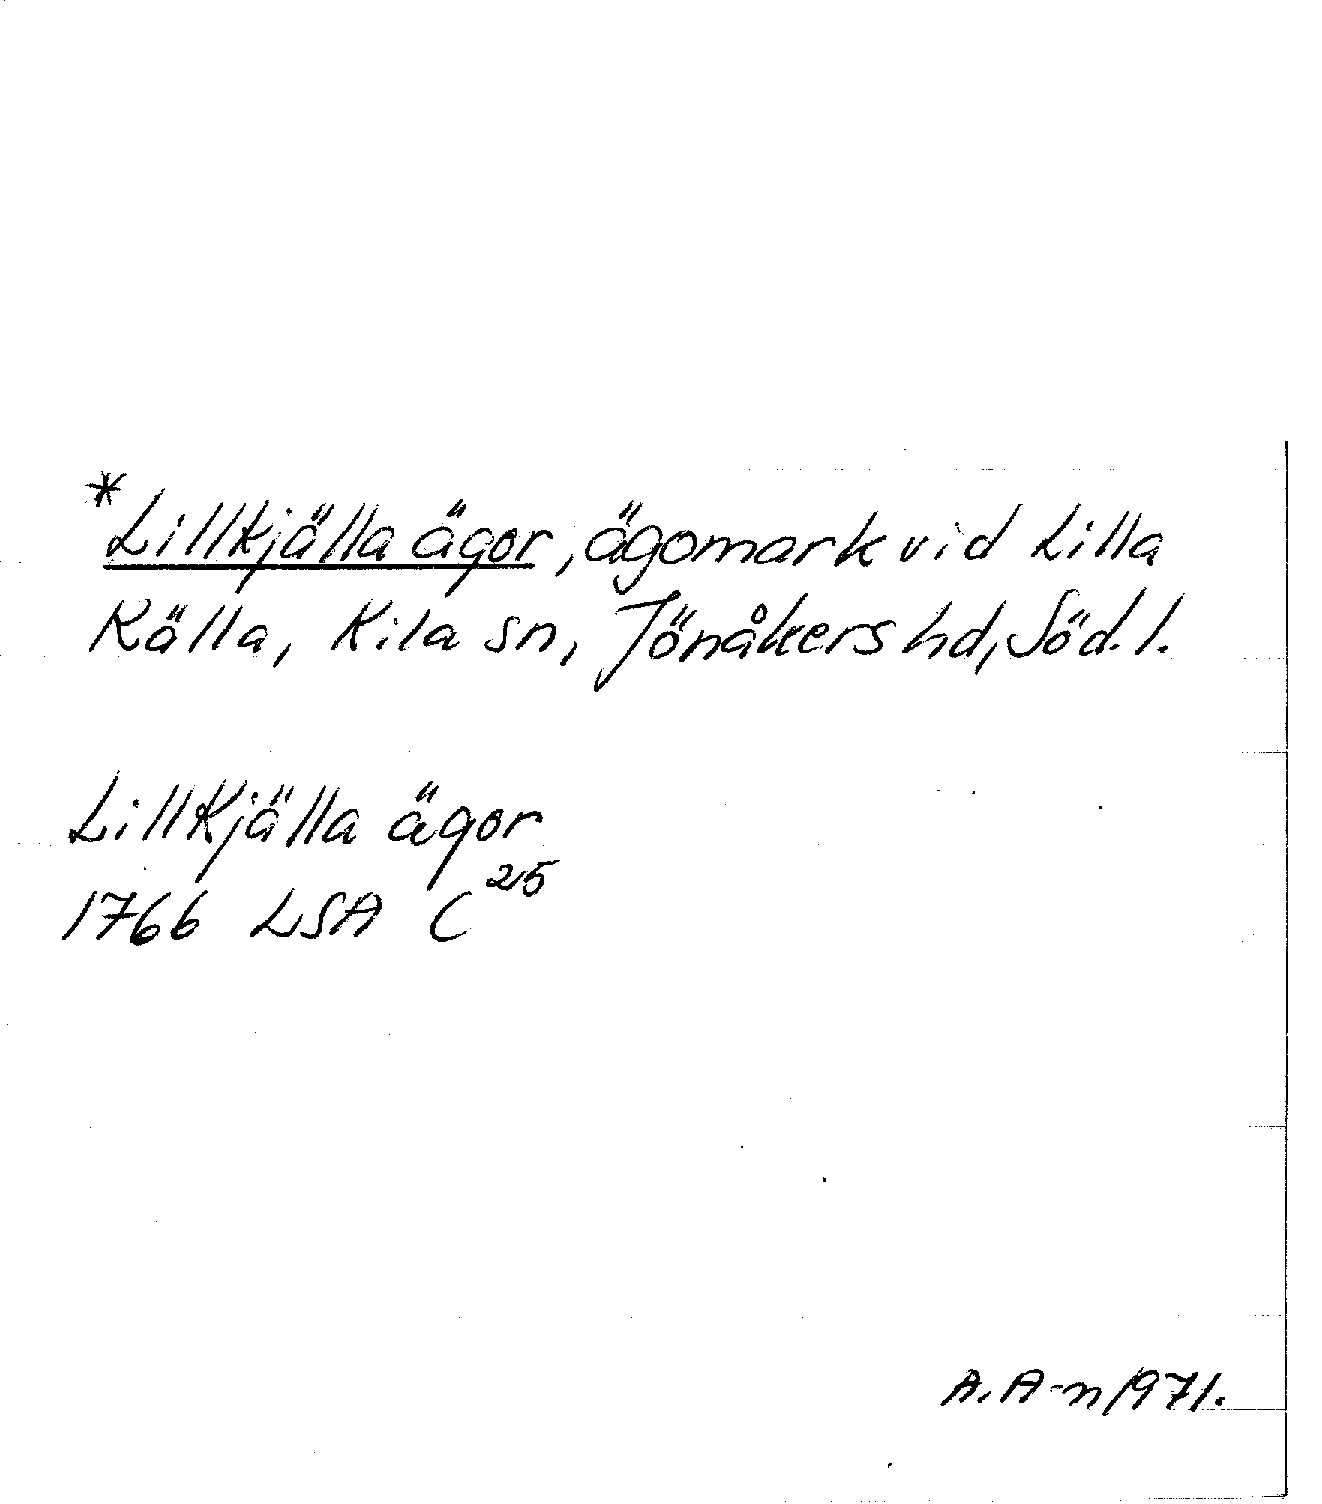 *Lillkjälla ägor, ägomark vid Lilla
Källa, Kila sn, Jönåkers hd, Söd. l.
Lillkjälla ägor
1766 LSA C²⁵
A. A-n 1971.